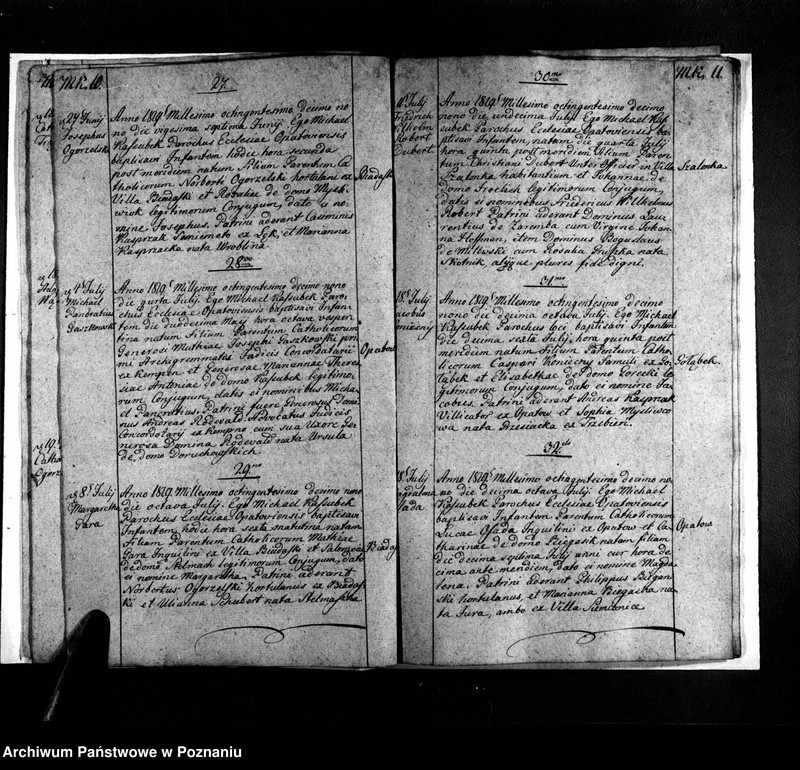 Mk. 10.
27.
27 Junij
Josephus
Ogorzelski
Anno 1819 Millesimo octingentesimo decimo no
no die vigesima septima Junij. Ego Michael
Kassubek Parochus Ecclesiae Opatoviensis
baptisavi Infantem hodie hora secunda
post meridiem natum Filium Parentum Ca
tholicorum Norberti Ogorzelski hortulani ex
Villa Biadaski et Rosaliae de domo
legitimorum Conjugum, dato ei no-
mine Josephus. Patrini aderant Casimirus
Kasprzak Semicmeto ex et Marianna
Kasprzacka nata Wroblina.
Biadaski
28vo
4 Julij
Michael
Pancratius
Paszkowski
Anno 1819 Millesimo octingentesimo decimo nono
die quarta Julij. Ego Michael Kassubek Paro-
chus Ecclesiae Opatoviensis baptisavi Infan-
tem die duodecima Maij hora octava vesper-
tina natum Filium Parentum Catholicorum
Generosi Mathiae Josephi Paszkowski pri
mi Archigrammatei Judicis Concordatarii
ex Kempen et Generosae Mariannae There
siae Antoniae de domo Kassubek legitimo-
rum Conjugum, datis ei nominibus Micha
el Pancratius. Patrini fuere Generosus Domi-
nus Andreas Rodewald Advocatus Judicis
Concordatarij ex Kempno cum sua Uxore Ge-
nerosa Domina Rodewald nata Ursula
de domo Doruchowskich.
Opatow
29no
8 Julij
Margaretha
Gara
Anno 1819 Millesimo octingentesimo decimo nono
die octava Julij. Ego Michael Kassubek
Parochus Ecclesiae Opatoviensis baptisavi
Infantem hodie hora sexta matutina natam
Filiam Parentum Catholicorum Mathiae
Gara Inquilini ex Villa Biadaski et Salomeae
de domo Stelmach legitimorum Conjugum, dato
ei nomine Margaretha. Patrini aderant
Norbertus Ogorzelski hortulanus ex Biadas-
ki et Marianna Schubert nata Stelmaszka
Biadas
Mk. 11.
30mo
11 Julij
Fridrich
Wilhelm
Robert
Dubert
Anno 1819 Millesimo octingentesimo decimo
nono die undecima Julij. Ego Michael Kas
subek Parochus Ecclesiae Opatoviensis ba-
ptisavi Infantem, natum die quarta Julij
hora quinta post meridiem Filium Paren-
tum Christiani Dubert Unter Officier in Villa
Szalonka habitantium et Johannae de
domo Froelich legitimorum Conjugum,
datis ei nominibus Friedericus Wilhelmus
Robert Patrini aderant Dominus Lau-
rentius de Zaremba cum Virgine Johan
na Hoffman, item Dominus Boguslaus
de Milewski cum Rosalia nata
Skotnik, aliique plures fide digni.
Szalonka
31mo
18 Julij
Jacobus
Konieczny
Anno 1819 Millesimo octingentesimo decimo
nono die decima octava Julij. Ego Michael
Kassubek Parochus loci baptisavi Infantem
die decima sexta Julij, hora quinta post
meridiem natum Filium Parentum Catho-
licorum Caspari Konieczny famuli ex Go
labek et Elisabethae de domo Gorecki le
gitimorum Conjugum, dato ei nomine Ja-
cobus. Patrini aderant Andreas Kasprzak
Villicator ex Opatow et Sophia Mysliwco
wa nata ex Trzebien.
Golabek.
32do
18 Julij
Magdalena
Osada
Anno 1819 Millesimo octingentesimo decimo no-
no die decima octava Julij. Ego Michael
Kassubek Parochus Ecclesiae Opatoviensis
baptisavi Infantem Parentum Catholicorum
Lucae Osada Inquilini ex Opatow et Ca-
tharinae de domo Biegasik natam filiam
die decima septima Julij anni cur hora de
cima ante meridiem, dato ei nomine Magda
lena. Patrini aderant Philippus
ski hortulanus, et Marianna Biegacka na
ta Jura, ambo ex Villa Siemianice
Opatow
Archiwum Państwowe w Poznaniu